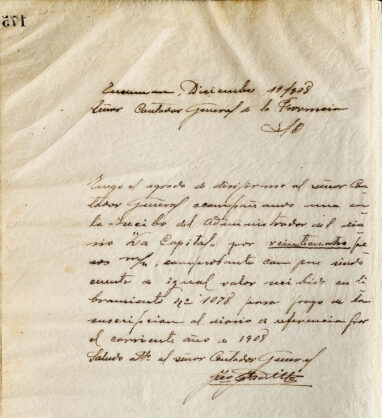 175
Tucuman, Diciembre 11/908
Señor Contador General de la Provincia
S/D
Tengo el agrado de dirijirme al señor Con
tador General acompañando una car
ta-recibo del Administrador del dia
rio "La Capital" por veinticuatro pe
sos m/n, comprobante con que rindo
cuenta de igual valor recibido en li
bramiento Nº 1078 para pago de la
suscripcion al diario de referencia por
el corriente año de 1908
Saludo Atte. al señor Contador General